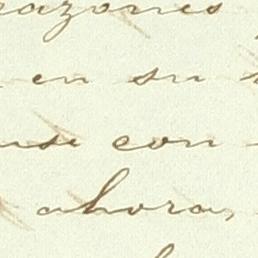 razones
en su
use con
ahora,